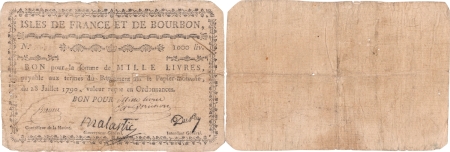 ISLES DE FRANCE ET DE BOURBON,
No 1000 liv.
BON pour la somme de MILLE LIVRES,
payable aux termes du Réglement sur le Papier-Monnoie,
du 28 Juillet 1790, valeur reçue en Ordonnances.
BON POUR Mille livres
Malartic Dupuy
Contrôleur de la Marine. Gouverneur Général.